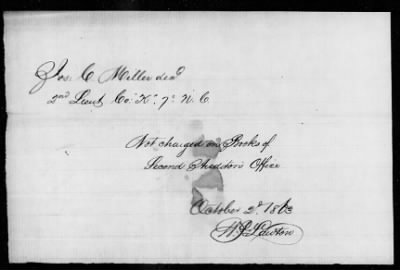 Jos. C Miller dec^d
2^nd Lieut Co. "K" 7" N. C
Not charged on Books of
Second Auditor's Office
October 2^d 1863